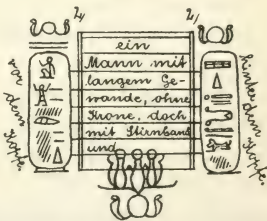 vor dem Kopfe.
ein
Mann mit
langem Ge-
wande, ohne
Krone, doch
mit Stirnband
und
hinter dem Kopfe.